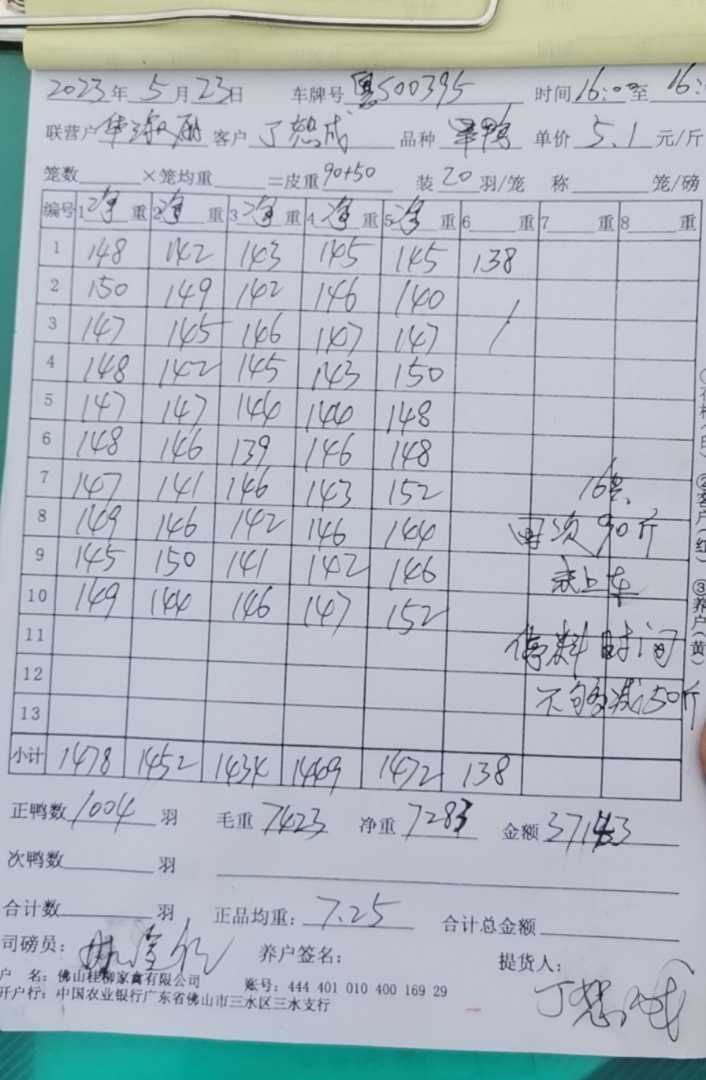 2023年5月23日 车牌号 粤S00395 时间16:00至16:
联营户 客户 丁想成 品种 单价 5.1 元/斤
笼数 ×笼均重 =皮重90+50 装20羽/笼 称 笼/磅
编号 1净重 2净重 3净重 4净重 5净重 6 重 7 重 8 重
1 148 142 143 145 145 138
2 150 149 142 146 140
3 147 145 146 147 147
4 148 142 145 143 150
5 147 147 144 144 148
6 148 146 139 146 148
7 147 141 146 143 152
8 149 146 142 146 144
9 145 150 141 142 146
10 149 144 146 147 152
11
12
13
16只
次90斤
未上车
停料时间
不够减50斤
小计 1478 1452 1434 1449 1472 138
正鸭数1004羽 毛重7423 净重7283 金额37143
次鸭数 羽
合计数 羽 正品均重:7.25 合计总金额
司磅员: 养户签名: 提货人:
丁想成
户 名:佛山桂柳家禽有限公司 账号:444 401 010 400 169 29
开户行:中国农业银行广东省佛山市三水区三水支行
②客户(红) ③养户(黄)